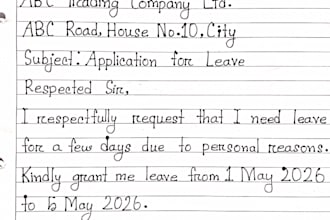 ABC Trading Company Ltd.
ABC Road, House No.10, City
Subject: Application for Leave
Respected Sir,
I respectfully request that I need leave
for a few days due to personal reasons.
Kindly grant me leave from 1 May 2026
to 5 May 2026.